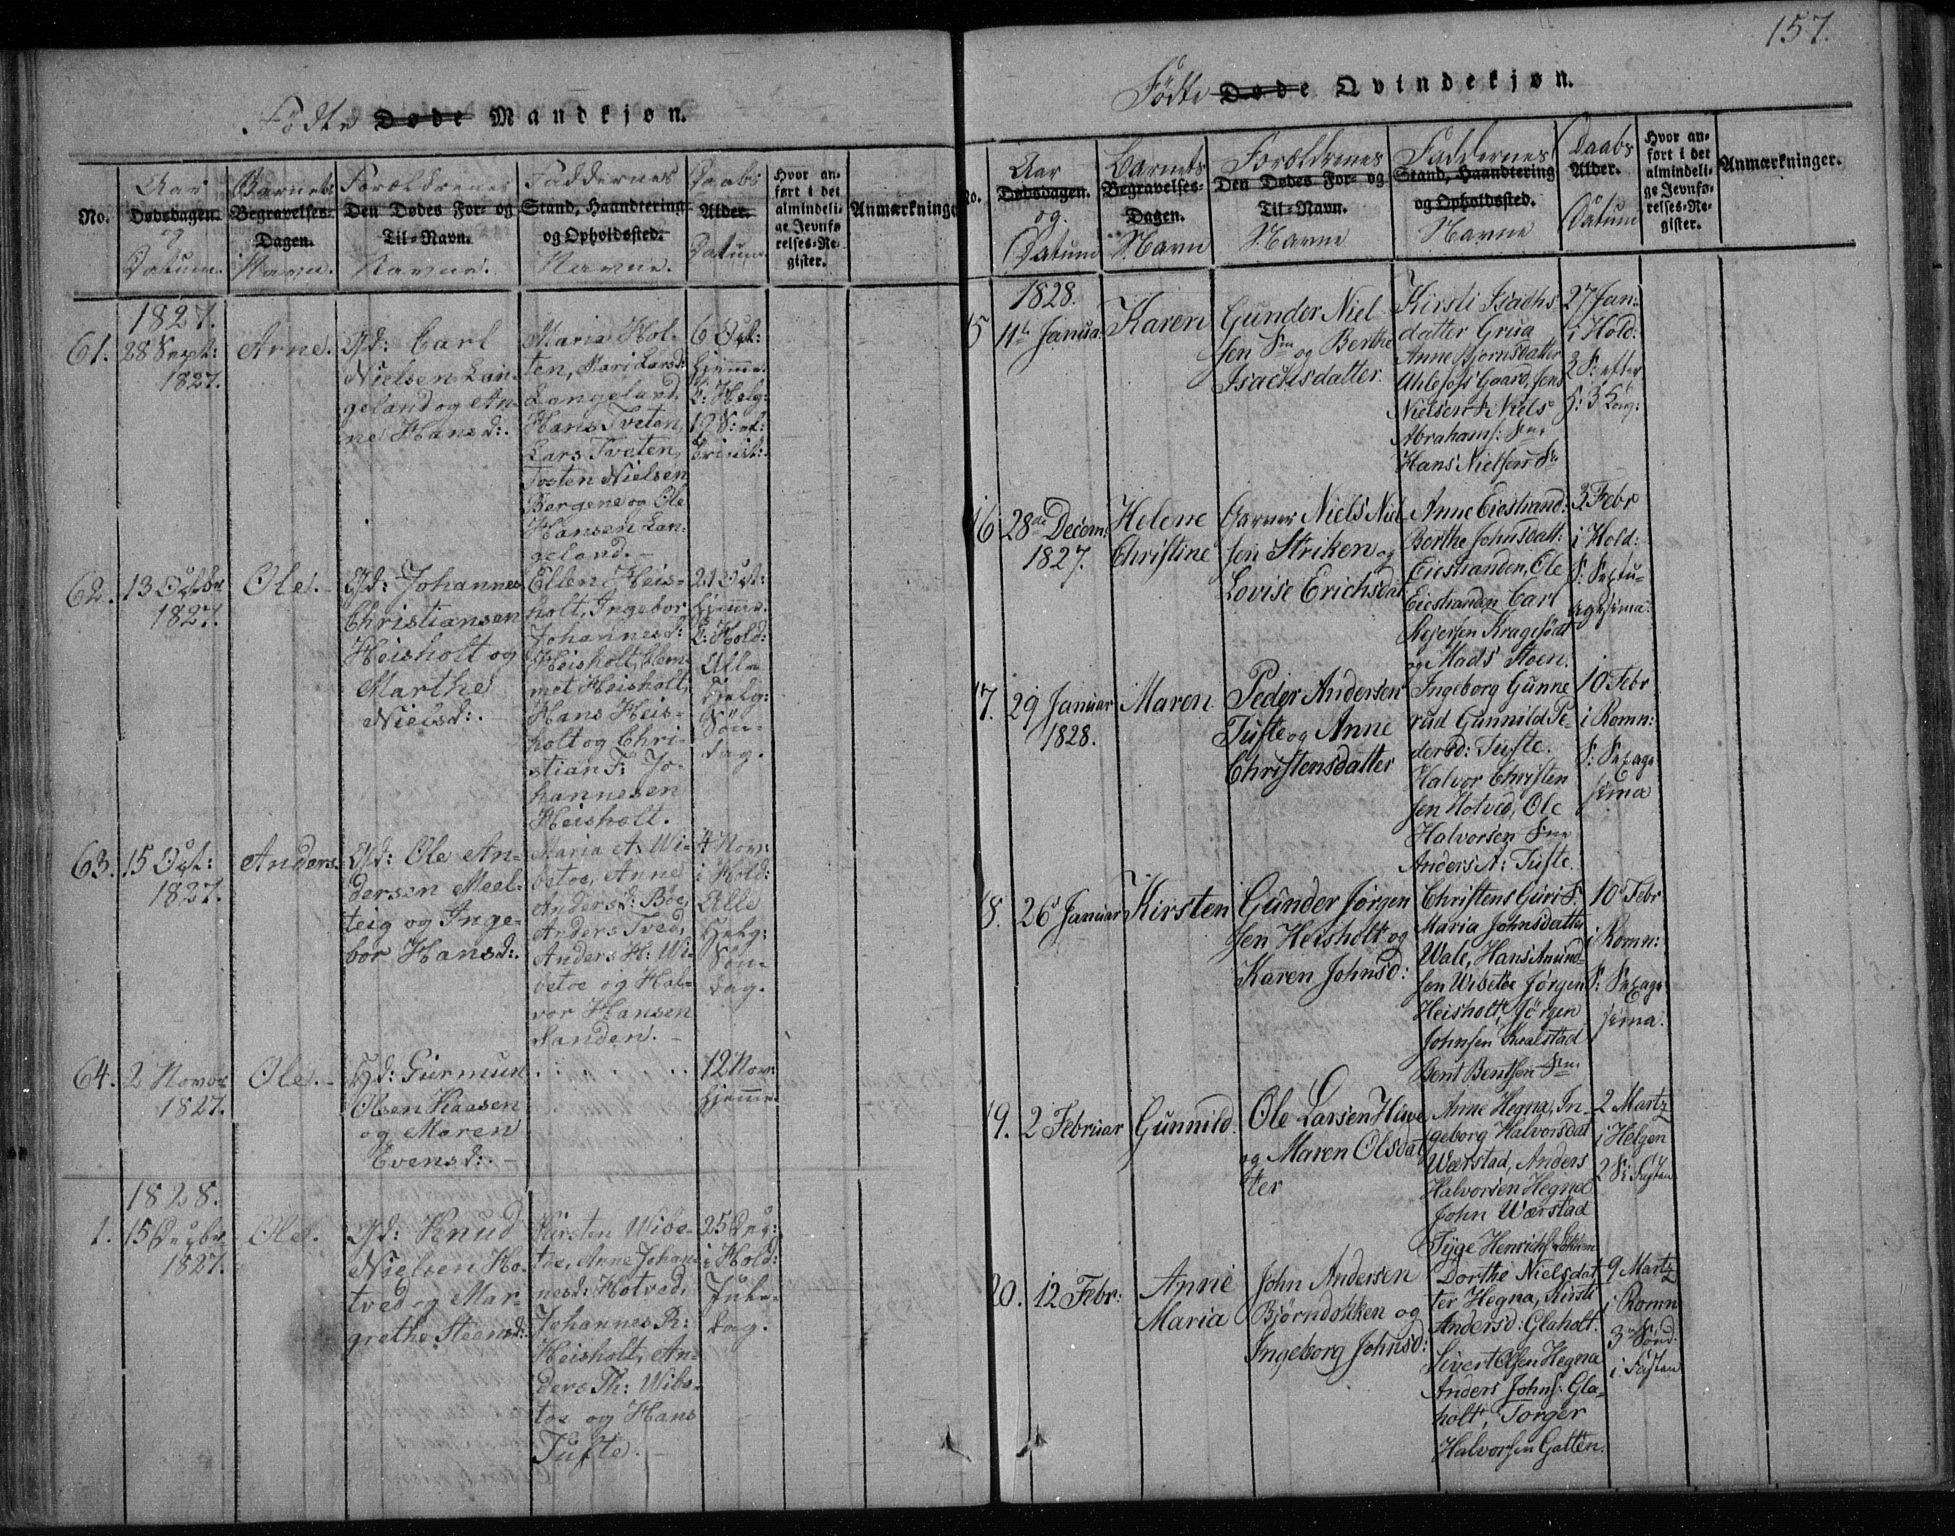 157.
Fødte Døde Mandkjøn.
No.
Aar Dødsdagen. og Datum.
Barnets Begravelses-Dagen. Navn.
Forældrenes Den Dødes For- og Til-Navn. Navne.
Faddernes Stand, Haandtering og Opholdssted. Navne.
Daabs Alder. Datum.
Hvor anført i det almindelige Jevnførelses-Register.
Anmærkninger
1827.
61.
28 Sept:
1827.
Arne.
Gd: Carl
Nielsen Lan-
geland og An-
ne Hansd:.
Maria Hol-
ten, Mari Larsd:
Langeland,
Hans Tveten,
Lars Tveten,
Torsten Nielsen
Bergene og Ole
Hansen Lan-
geland.
6 Oct:
hjemme.
C: Helg:
19 S: ef:
Trinit:.
62.
13 Octbr
1827.
Ole.
Gd: Johannes
Christiansen
Heisholt og
Marthe
Nielsd:.
Ellen Heis-
holt, Ingebor
Johannesd:
Heisholt, Clem-
met Heisholt,
Hans Heis-
holt og Chri-
stian F: Jo-
hannesen
Heisholt.
21 Oct:
hjemme.
C: Hold:
Alle
Helg:
Søn-
dag.
63.
15 Oct:
1827.
Anders.
Gd: Ole An-
dersen Meel-
teig og Inge-
bor Hansd:.
Maria A: Wi-
betoe, Anne
Andersd: Bøe,
Anders Tved,
Anders H: Wi-
betoe og Hal-
vor Hansen
Sanden.
4 Nov:
i Hold:
Alle
Helg:
Søn-
dag.
64.
2 Novbr
1827.
Ole.
Hd: Giermun
Olsen Kaasen
og Maren
Evensd:.
12 Nov:
hjemme.
1828.
1.
15 Decbr
1827.
Ole.
Gd: Knud
Nielsen Ho-
tved og Mar-
grethe Steensd:
Kirsten Wibe-
toe, Anne Johan-
nesd: Hotved,
Johannes R:
Heisholt, An-
ders Th: Wibe-
toe og Hans
Tufte.
25 Dec:
i Hold:
Jule-
dag.
Fødte Døde Qvindekjøn.
No.
Aar Dødsdagen. og. Datum
Barnets Begravelses-Dagen. Navn
Forældrenes Den Dødes For- og Til-Navn. Navne
Faddernes Stand, Haandtering og Opholdssted. Navne
Daabs Alder. Datum
Hvor anført i det almindelige Jevnførelses-Register.
Anmærkninger.
1828.
15
11te Janua
Karen
Gunder Niel
sen Sne og Berthe
Isachsdatter.
Kirsti Isachs
datter Grua
Anne Bjørnsdatter
Uhlefofs Gaard, Jens
Nielsen S Niels
Abrahams: Sne
Hans Nielsen Sne
27 Jan:
i Hold:
3 S: efter
H: 3 Kong:
16
28de Decem:
1827.
Helene
Christine
Garver Niels Niel
sen Striken og
Lovise Erichsdat
Anne Eiestrand:
Berthe Johnsdatt:
Eiestranden, Ole
Eiestranden Carl
Nejersen Kragefodt
og Mads Moen.
3 Febr
i Hold:
S: Septu-
agesima.
17.
29 Januar
1828.
Maren
Peder Andersen
Tufte og Anne
Christensdatter
Ingeborg Gunne
rud Gunnild Pe-
dersd: Tufte.
Halvor Christen
sen Hotved, Ole
Halvorsen Sne
Anders A: Tufte.
10 Febr
i Romn:
S: Sexage
sima
18.
26 Januar
Kirsten
Gunder Jørgen
sen Heisholt og
Karen Johnsd:
Christens Guri S.
Maria Johnsdatter
Wale, Hans Amund-
sen Wibetoe Jørgen
Heisholt, Jörgen
Johnsen Kaalstad
Bent Bentsen Sne.
10 Febr
i Romn:
S: Sexage
sima.
19.
2 Februar
Gunnild.
Ole Larsen Huve
og Maren Olsdat
ter
Anne Hegna, In-
geborg Halvorsdat
Wærstad, Anders
Halvorsen Hegna
John Wærstad
Tyge Henrichs:
2 Martz
i Helgen
2 S: i Fasten
20.
12 Febr:
Anne
Maria
John Andersen
Bjørndokken og
Ingeborg Johnsd:
Dorthe Nielsdat
ter Hegna, Kirsti
Andersd: Glaholt.
Sivert Olsen Hegna
Anders Johns: Gla-
holt, Torger
Halvorsen Gatten.
9 Martz
i Romn
3die Sønd:
i Fasten